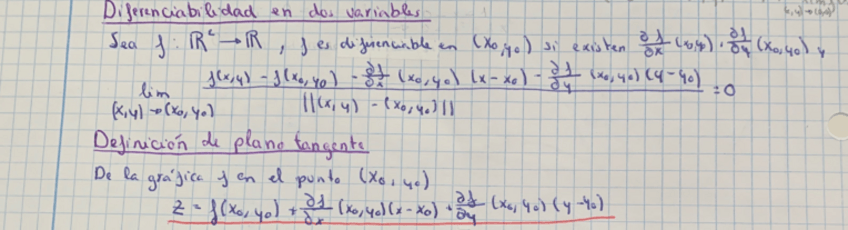 Diferenciabilidad en dos variables
Sea f: ℝ² → ℝ, f es diferenciable en (x₀,y₀) si existen ∂f/∂x (x₀,y₀), ∂f/∂y (x₀,y₀) y
lim (x,y)→(x₀,y₀) [f(x,y) - f(x₀,y₀) - ∂f/∂x (x₀,y₀)(x-x₀) - ∂f/∂y (x₀,y₀)(y-y₀)] / ||(x,y) - (x₀,y₀)|| = 0
Definición de plano tangente
De la gráfica f en el punto (x₀,y₀)
z = f(x₀,y₀) + ∂f/∂x (x₀,y₀)(x-x₀) + ∂f/∂y (x₀,y₀)(y-y₀)